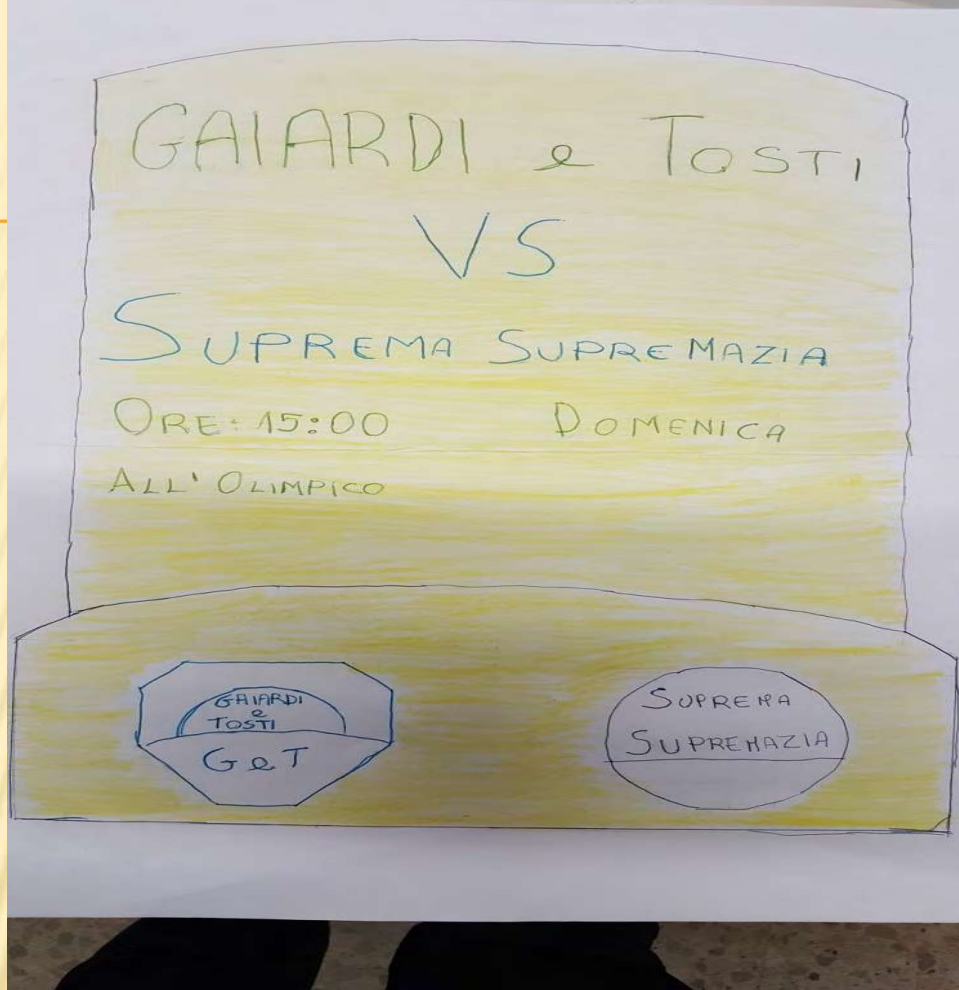 GAIARDI e TOSTI
VS
SUPREMA SUPREMAZIA
ORE: 15:00 DOMENICA
ALL' OLIMPICO
GAIARDI
e
TOSTI
G e T
SUPREMA
SUPREMAZIA